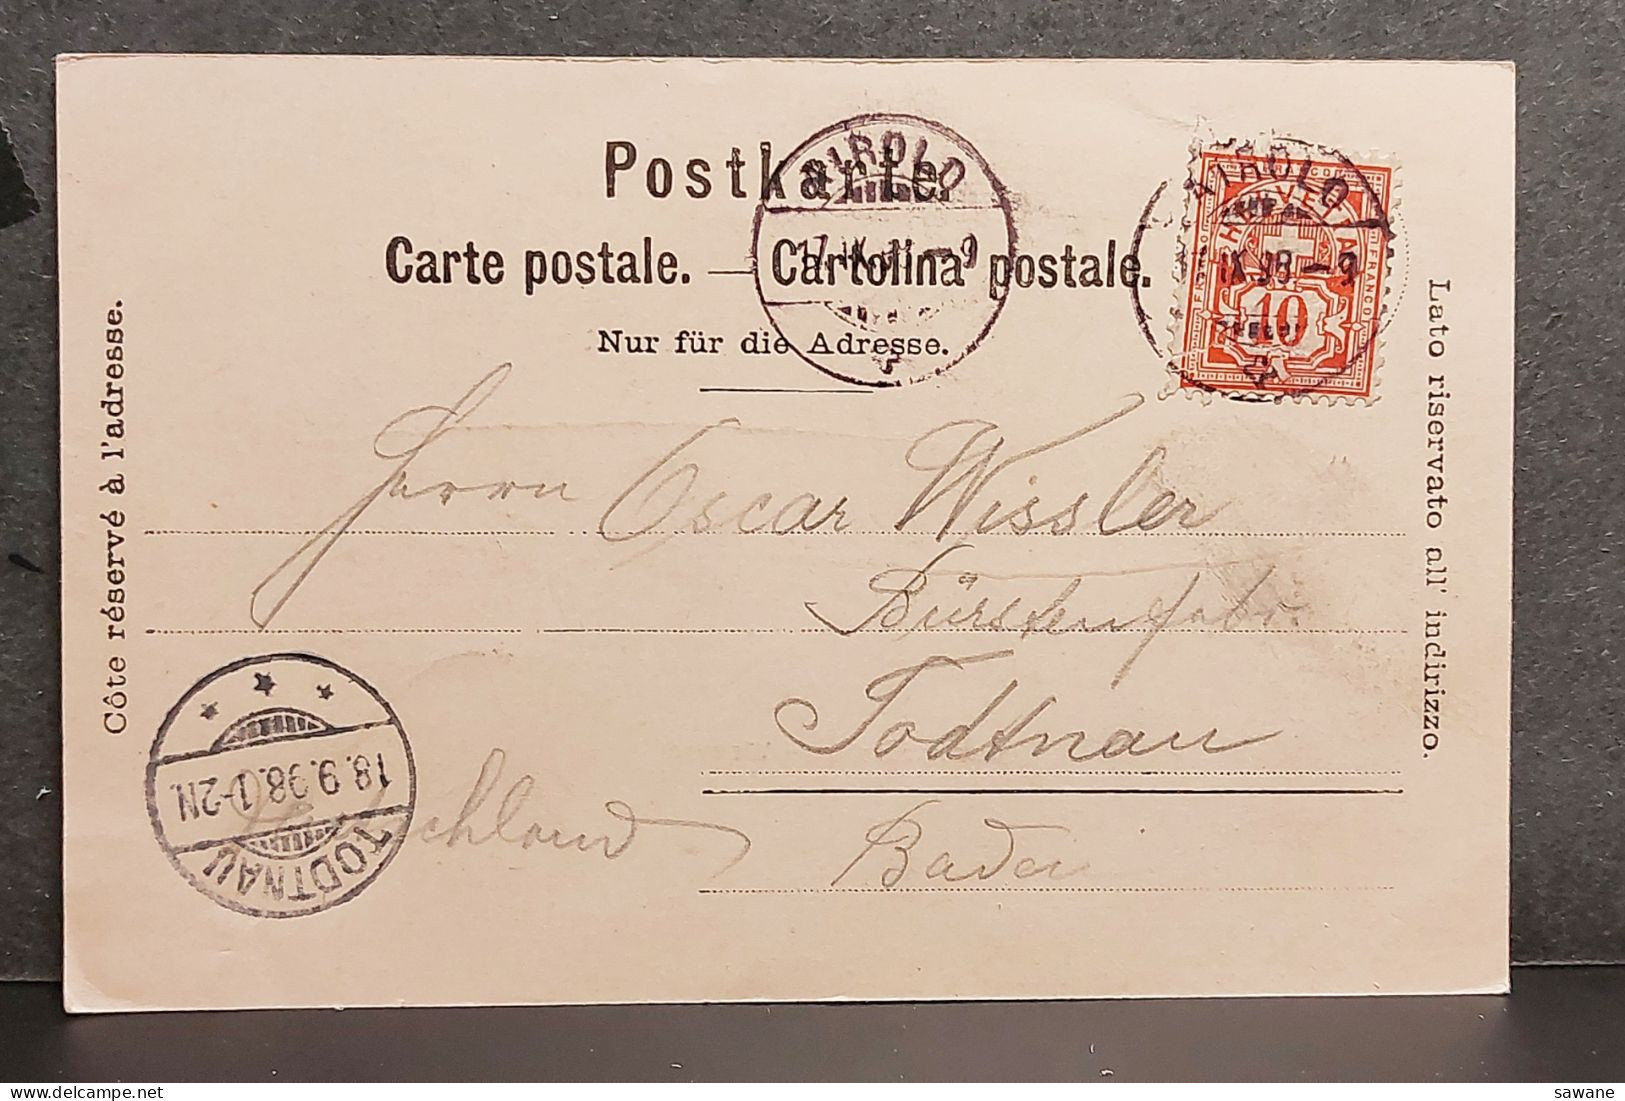 Postkarte.
Carte postale. — Cartolina postale.
Nur für die Adresse.
Côte réservé à l'adresse.
Lato riservato all' indirizzo.
AIROLO
17. IX. 9
AIROLO
IX 98 – 9
HELVETIA
FRANCO
10
Herrn Oscar Wissler
Bürstenfabr.
Todtnau
Baden
Deutschland
18.9.98.1-2N.
TODTNAU
sawane